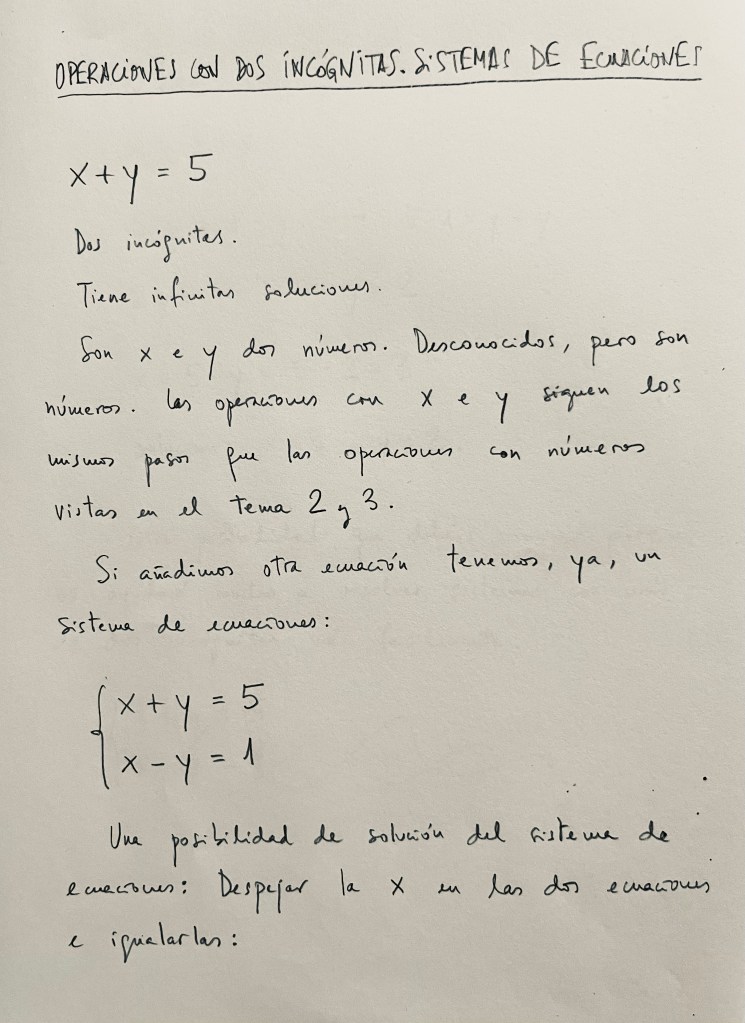 OPERACIONES CON DOS INCÓGNITAS. SISTEMAS DE ECUACIONES
x + y = 5
Dos incógnitas.
Tiene infinitas soluciones.
Son x e y dos números. Desconocidos, pero son
números. Las operaciones con x e y siguen los
mismos pasos que las operaciones con números
vistas en el tema 2 y 3.
Si añadimos otra ecuación tenemos, ya, un
sistema de ecuaciones:
x + y = 5
x - y = 1
Una posibilidad de solución del sistema de
ecuaciones: Despejar la x en las dos ecuaciones
e igualarlas: